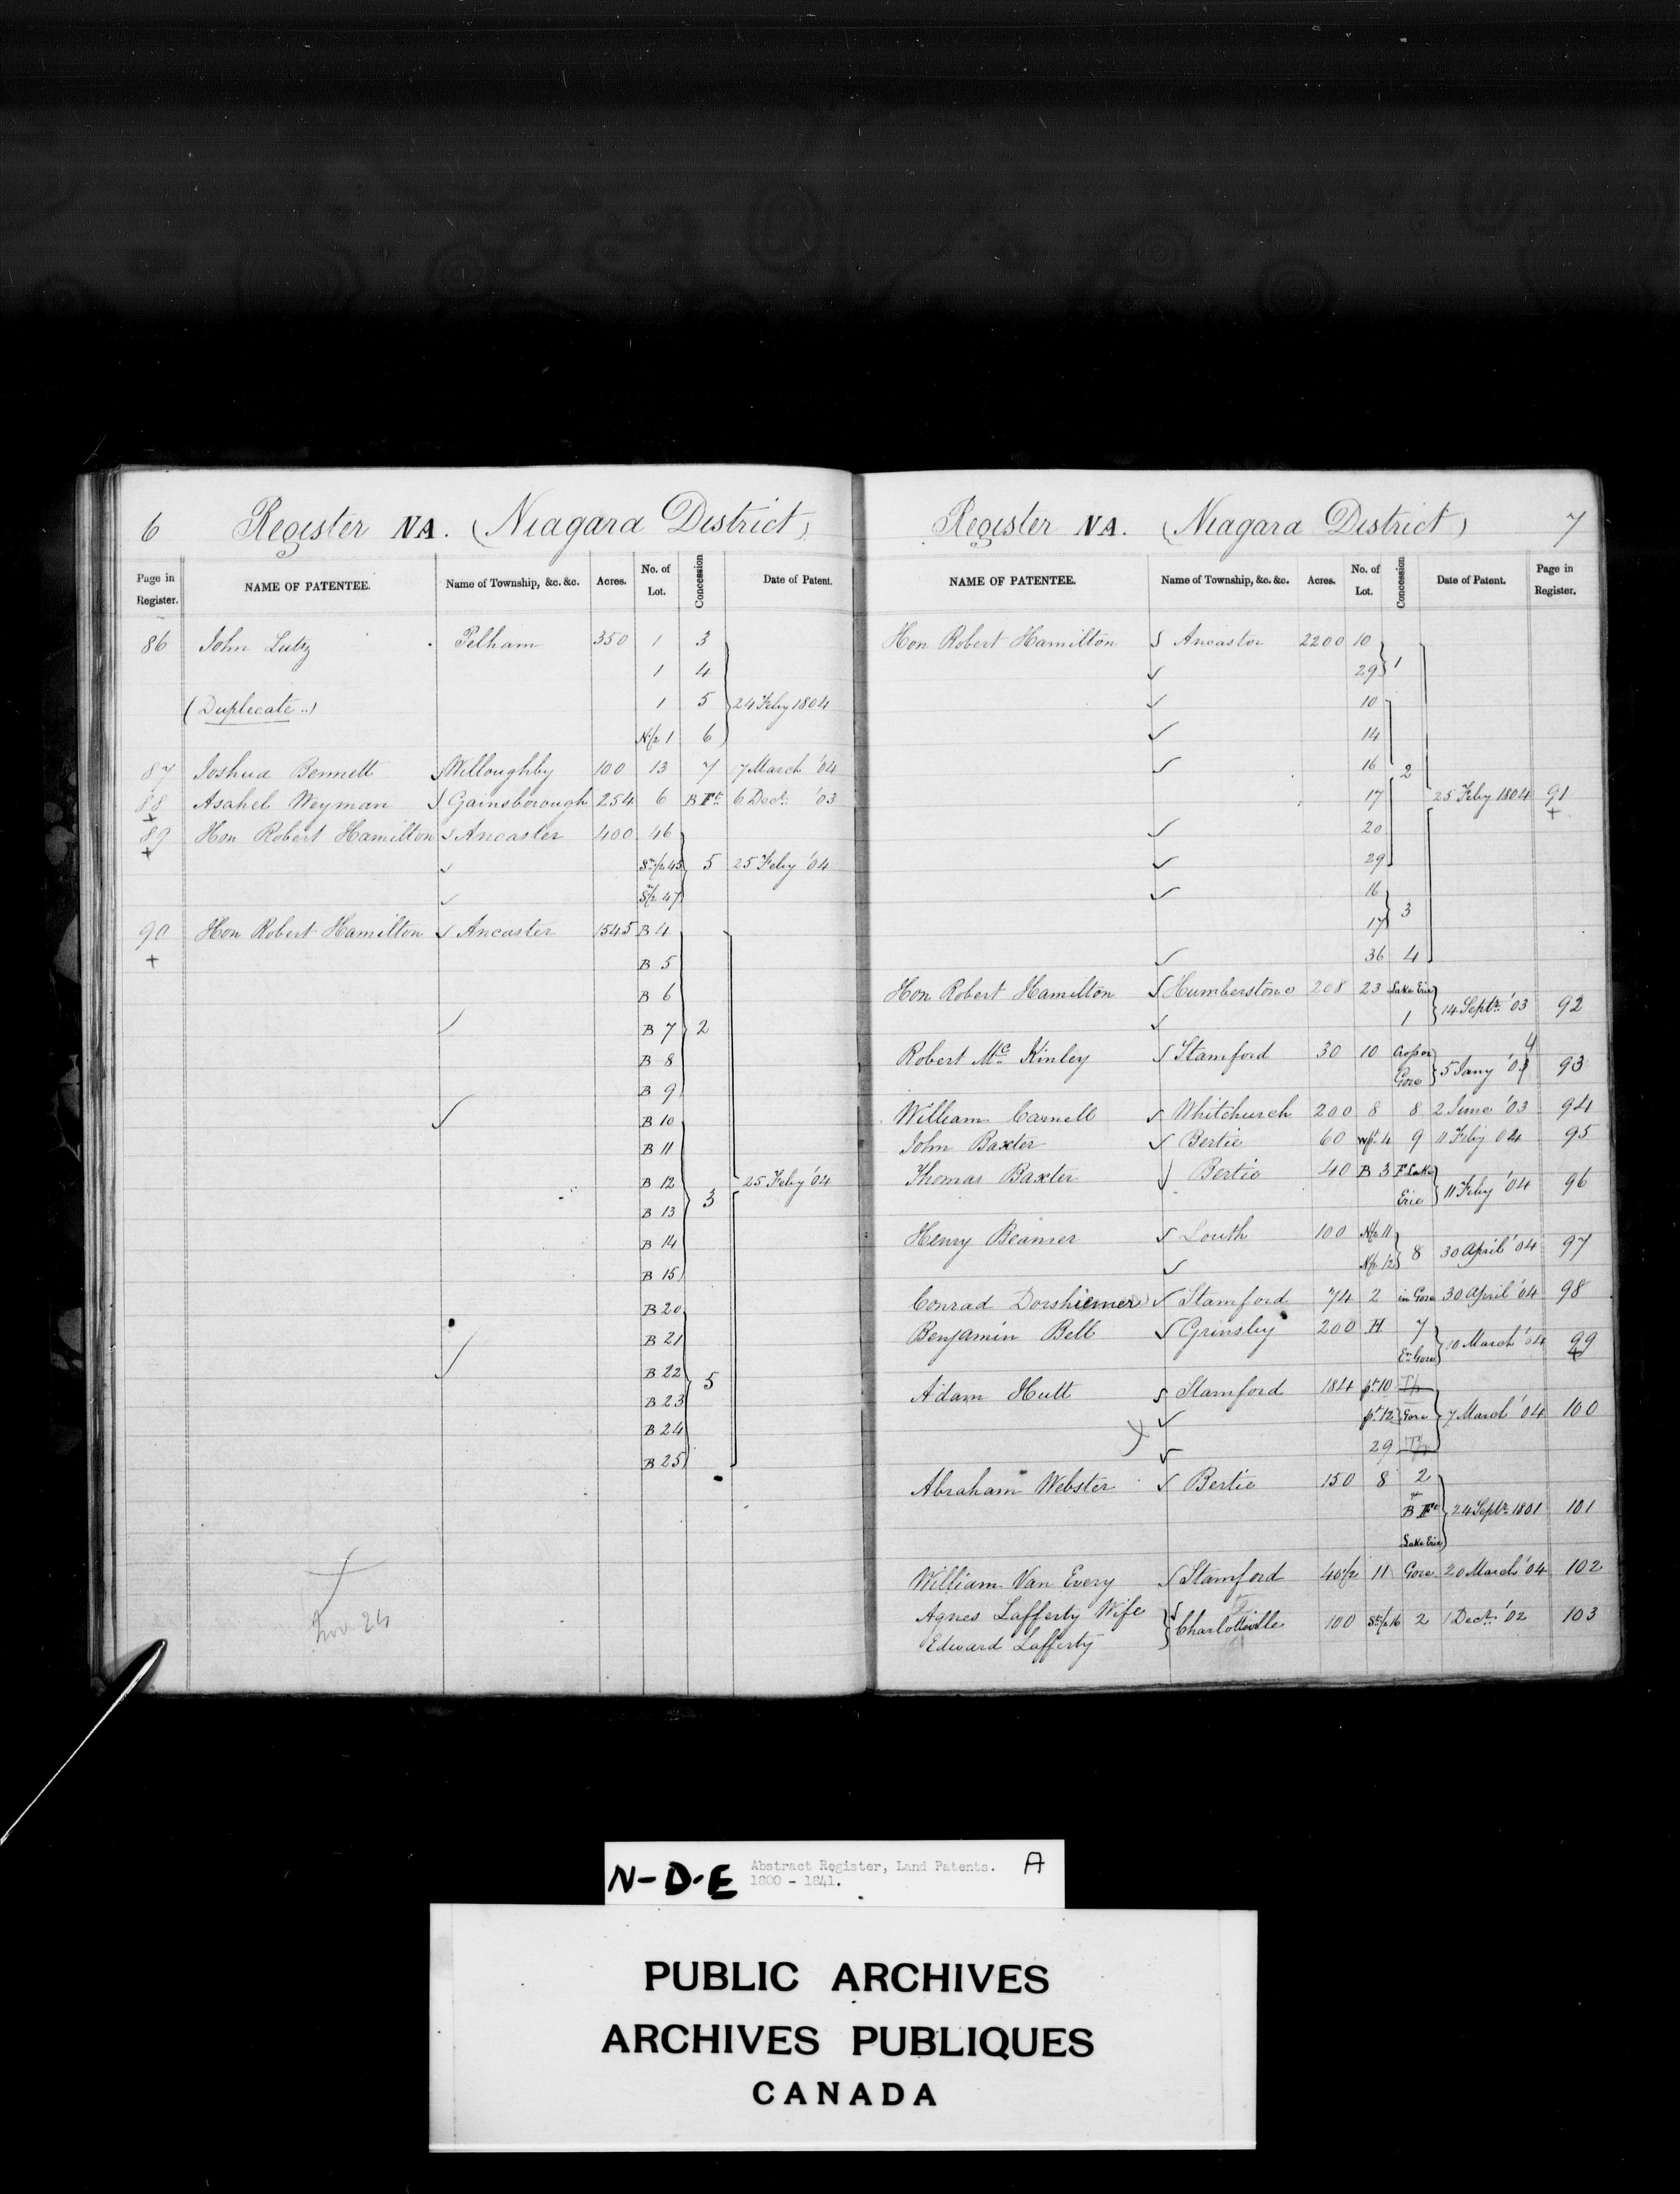 6 Register NA. (Niagara District)
Page in Register. NAME OF PATENTEE. Name of Township, &c. &c. Acres. No. of Lot. Concession Date of Patent.
86 John Lutz Pelham 350 1 3
1 4
(Duplicate..) 1 5 24 Feby 1804
N½ 1 6
87 Joshua Bennett Willoughby 100 13 7 7 March '04
88 Asahel Weyman Gainsborough 254 6 B Ft 6 Decr '03
89 Hon Robert Hamilton Ancaster 400 46
½ 45 5 25 Feby '04
½ 47
90 Hon Robert Hamilton Ancaster 1545 B 4
B 5
B 6
B 7 2
B 8
B 9
B 10
B 11
B 12 25 Feby '04
B 13 3
B 14
B 15
B 20
B 21
B 22 5
B 23
B 24
B 25
Nov 24
Register NA. (Niagara District) 7
NAME OF PATENTEE. Name of Township, &c. &c. Acres. No. of Lot. Concession Date of Patent. Page in Register.
Hon Robert Hamilton Ancaster 2200 10
29 1
10
14
16 2
17 25 Feby 1804 91
20
29
16
17 3
36 4
Hon Robert Hamilton Humberstone 208 23 Lake Erie
1 14 Septr '03 92
Robert Mc Kinley Stamford 30 10 Cross or 4
Gore 5 Jany '03 93
William Carnell Whitchurch 200 8 8 2 June '03 94
John Baxter Bertie 60 Wpt 4 9 11 Feby 04 95
Thomas Baxter Bertie 40 B 3 F Lake
Erie 11 Feby '04 96
Henry Beamer Louth 100 N½ 11
N½ 12 8 30 April '04 97
Conrad Dorshiemer Stamford 74 2 in Gore 30 April '04 98
Benjamin Bell Grimsby 200 H 7
En Gore 10 March '04 99
Adam Hutt Stamford 184 pt 10
pt 12 Gore 7 March '04 100
29
Abraham Webster Bertie 150 8 2
B Ft 24 Septr 1801 101
Lake Erie
William Van Every Stamford 40½ 11 Gore 20 March '04 102
Agnes Lafferty Wife
Charlotteville 100 ½ 16 2 1 Decr '02 103
Edward Lafferty
N-D-E Abstract Register, Land Patents. A
1800 - 1841.
PUBLIC ARCHIVES
ARCHIVES PUBLIQUES
CANADA